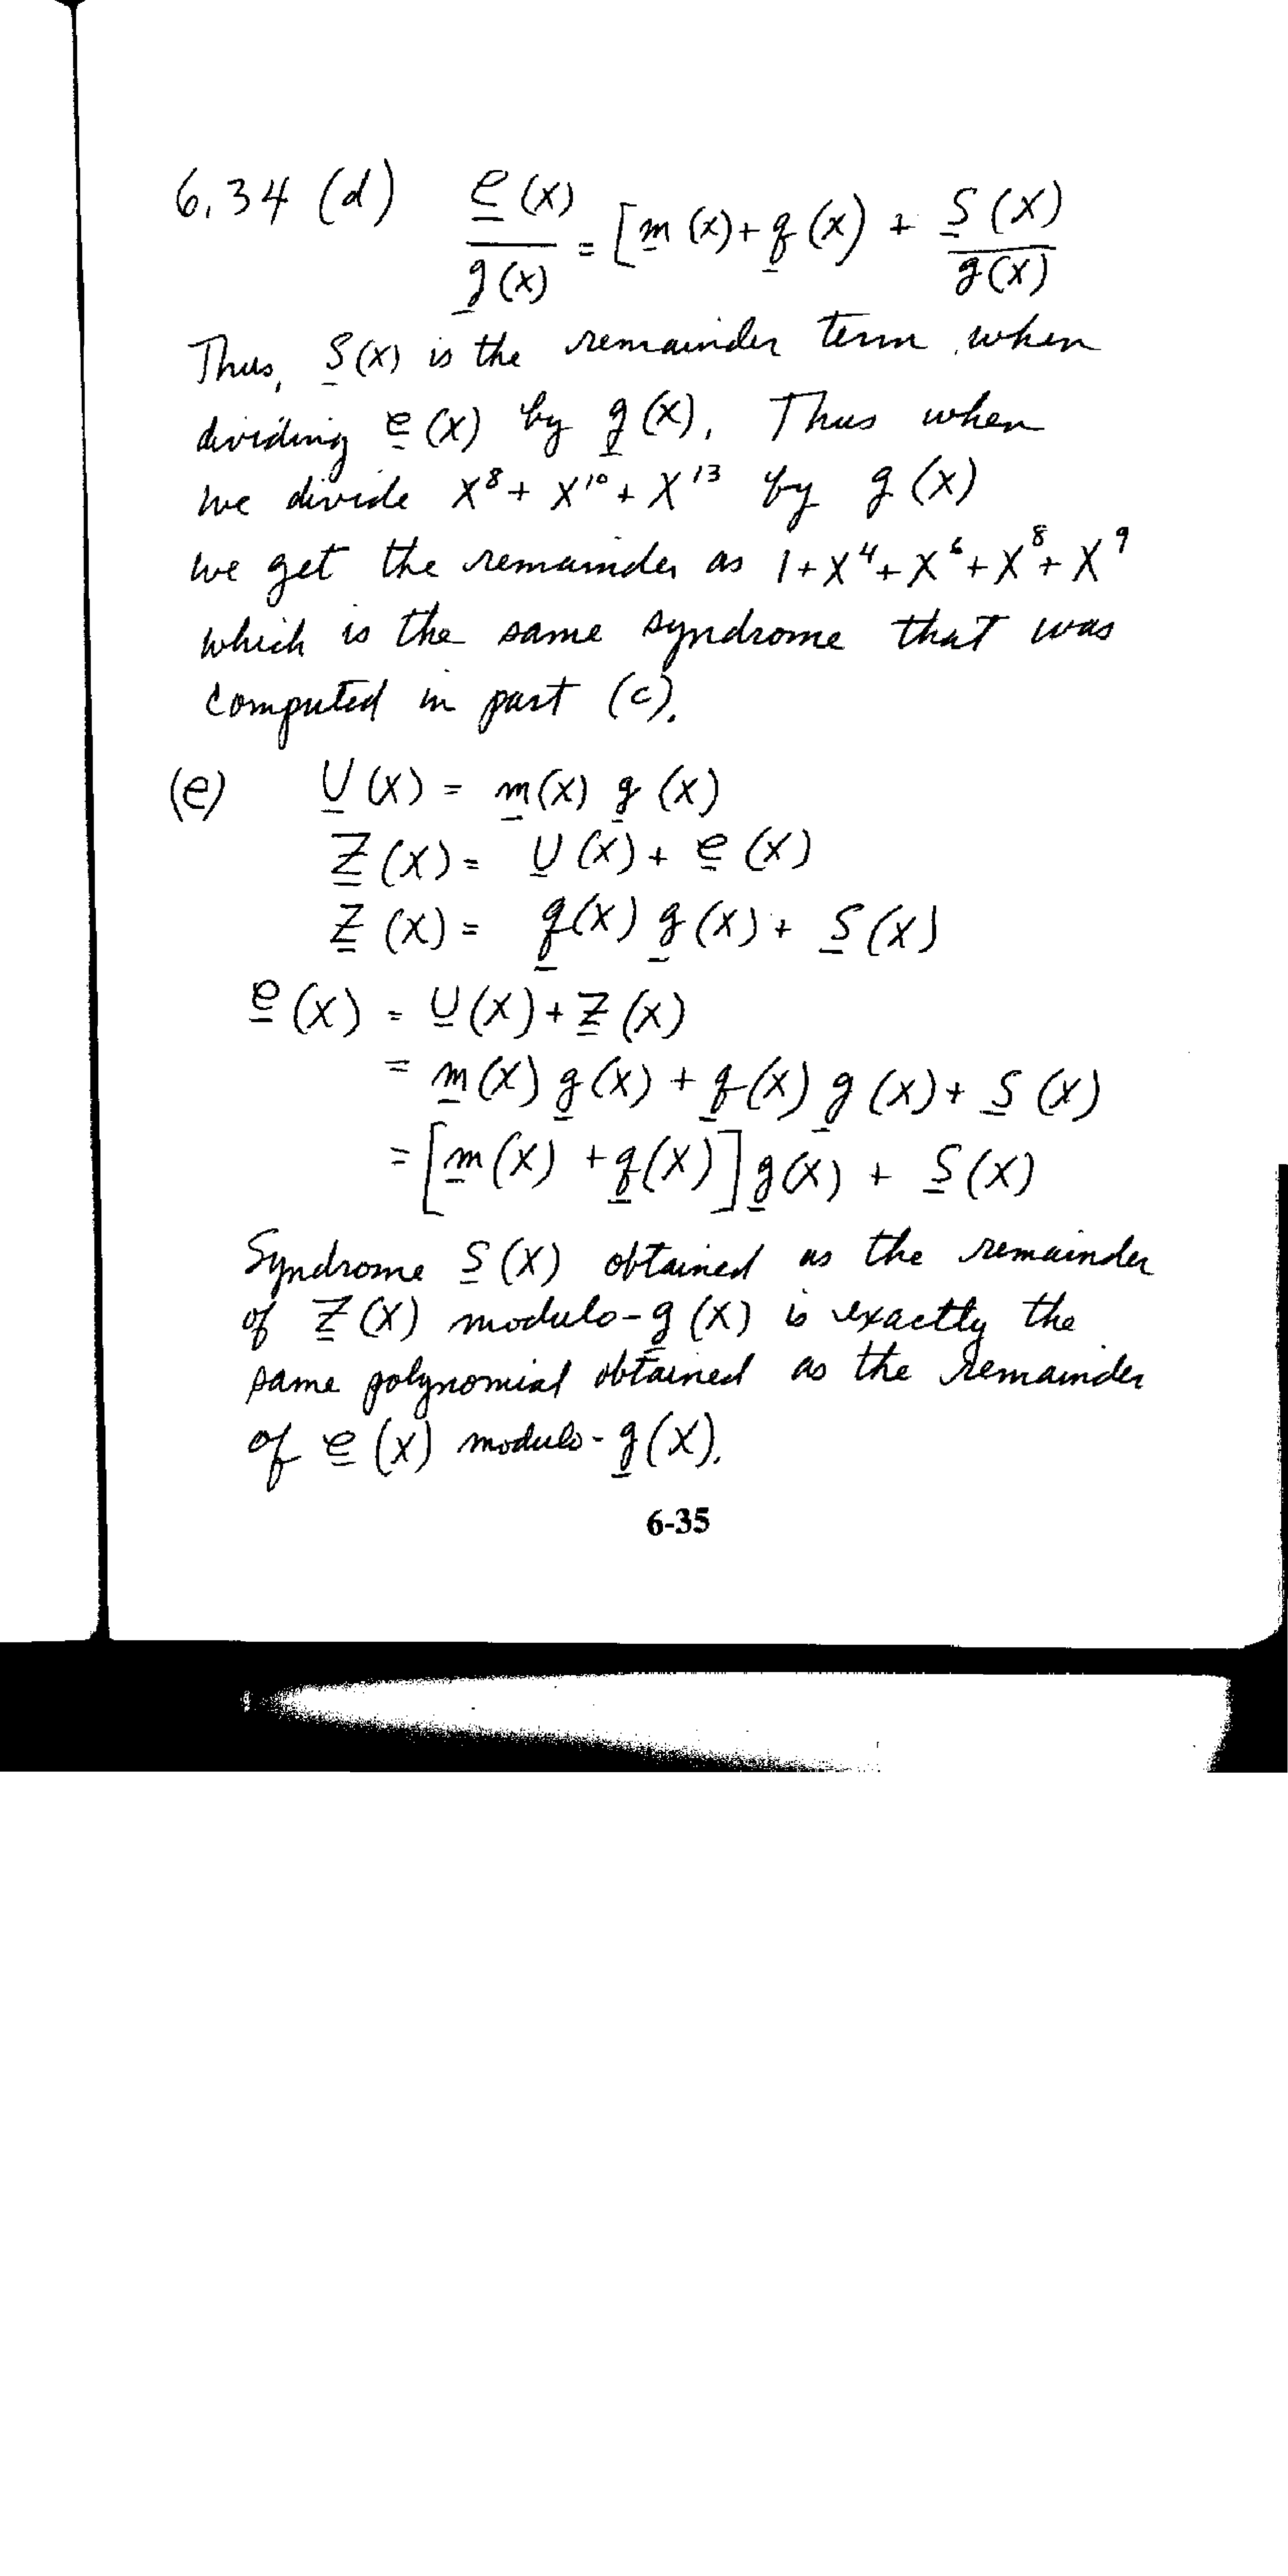 6.34 (d) e(x)/g(x) = [m(x) + q(x) + S(x)/g(x)
Thus, S(x) is the remainder term when
dividing e(x) by g(x). Thus when
we divide X⁸ + X¹⁰ + X¹³ by g(x)
we get the remainder as 1 + X⁴ + X⁶ + X⁸ + X⁹
which is the same syndrome that was
computed in part (c).
(e) U(x) = m(x) g(x)
Z(x) = U(x) + e(x)
Z(x) = q(x) g(x) + S(x)
e(x) = U(x) + Z(x)
= m(x) g(x) + q(x) g(x) + S(x)
= [m(x) + q(x)] g(x) + S(x)
Syndrome S(x) obtained as the remainder
of Z(x) modulo-g(x) is exactly the
same polynomial obtained as the remainder
of e(x) modulo-g(x).
6-35